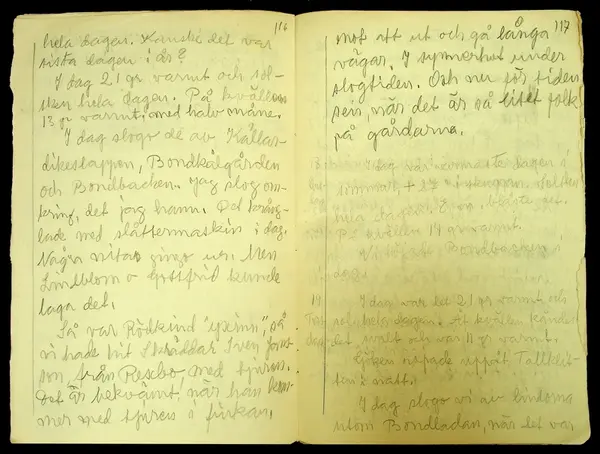 116
hela dagen. Kanske det var
sista dagen i år?
I dag 21 gr varmt och sol-
sken hela dagen. På kvällen
13 gr varmt, med halv måne.
I dag slogo de av Källar-
dikeslappen, Bondkålgården
och Bondbacken. Jag slog om-
kring, det jag hann. Det kräng-
lade med slåttermaskin i dag.
Några nitar gingo ur. Men
Lindblom o Gottfrid kunde
laga det.
Så var Rödkind "yxinn", så
vi hade hit Skräddar Sven
från Resebo, med tjuren.
Det är bekvämt, när han kom-
mer med tjuren i
117
mot att ut och gå långa
vägar. I synnerhet under
slogtiden. Och nu för tiden
sen, när det är så litet folk
på gårdarna.
I dag var varmaste dagen i
sommar,
hela dagen.
På kvällen 14 gr varmt.
Bondbacken
I dag var det 21 gr varmt och
sol hela dagen. At kvällen
det svalt och var 11 gr varmt.
Göken ropade uppåt
i natt.
I dag slogo vi av lindorna
utom Bondladan, när det var